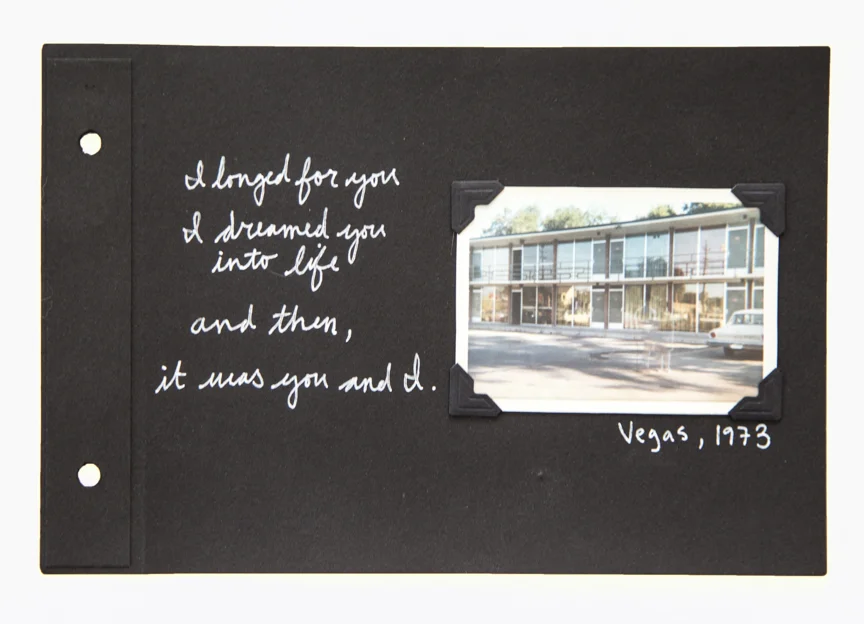 I longed for you
I dreamed you
into life
and then,
it was you and I.
Vegas, 1973